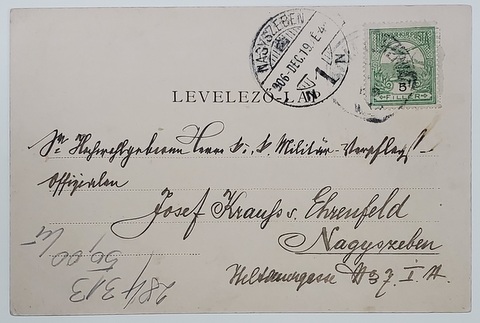 NAGYSZEBEN
906 DEC. 19. E 4
1
N
POSTA
5
FILLÉR
LEVELEZŐ-LAP
Sr. Hochwohlgeboren Herrn k. k. Militär-Verpflegs-
Offizialen
Josef Krauss v. Ehrenfeld
Nagyszeben
I. St.
50,00
284313